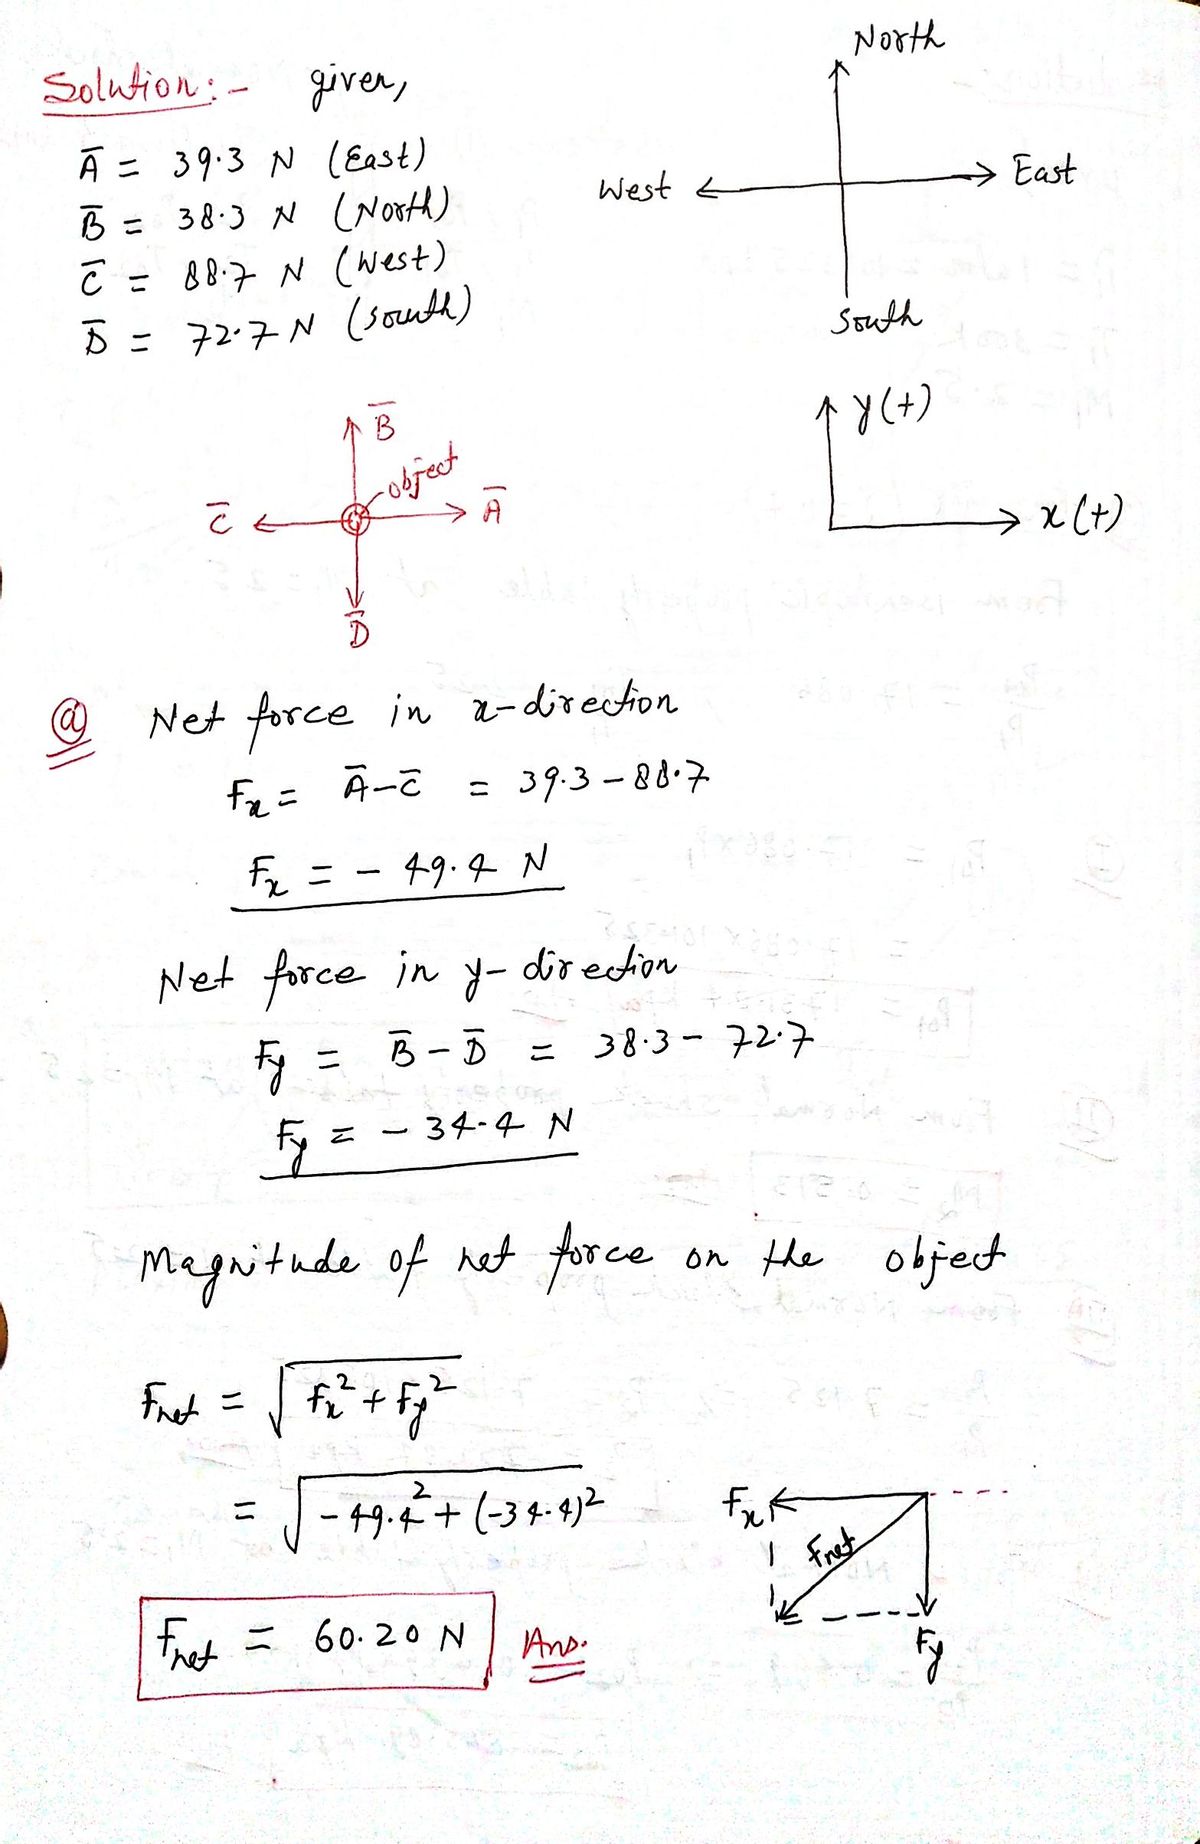 Solution:- given,
North
A̅ = 39.3 N (East)
B̅ = 38.3 N (North)
C̅ = 88.7 N (West)
D̅ = 72.7 N (South)
West
East
South
B̅
object
C̅
A̅
D̅
y(+)
x(+)
(a) Net force in x-direction
Fx = A̅-C̅ = 39.3-88.7
Fx = - 49.4 N
Net force in y-direction
Fy = B̅-D̅ = 38.3- 72.7
Fy = - 34.4 N
Magnitude of net force on the object
Fnet = √Fx²+Fy²
= √-49.4²+(-34.4)²
Fx
Fnet
Fy
Fnet = 60.20 N Ans.